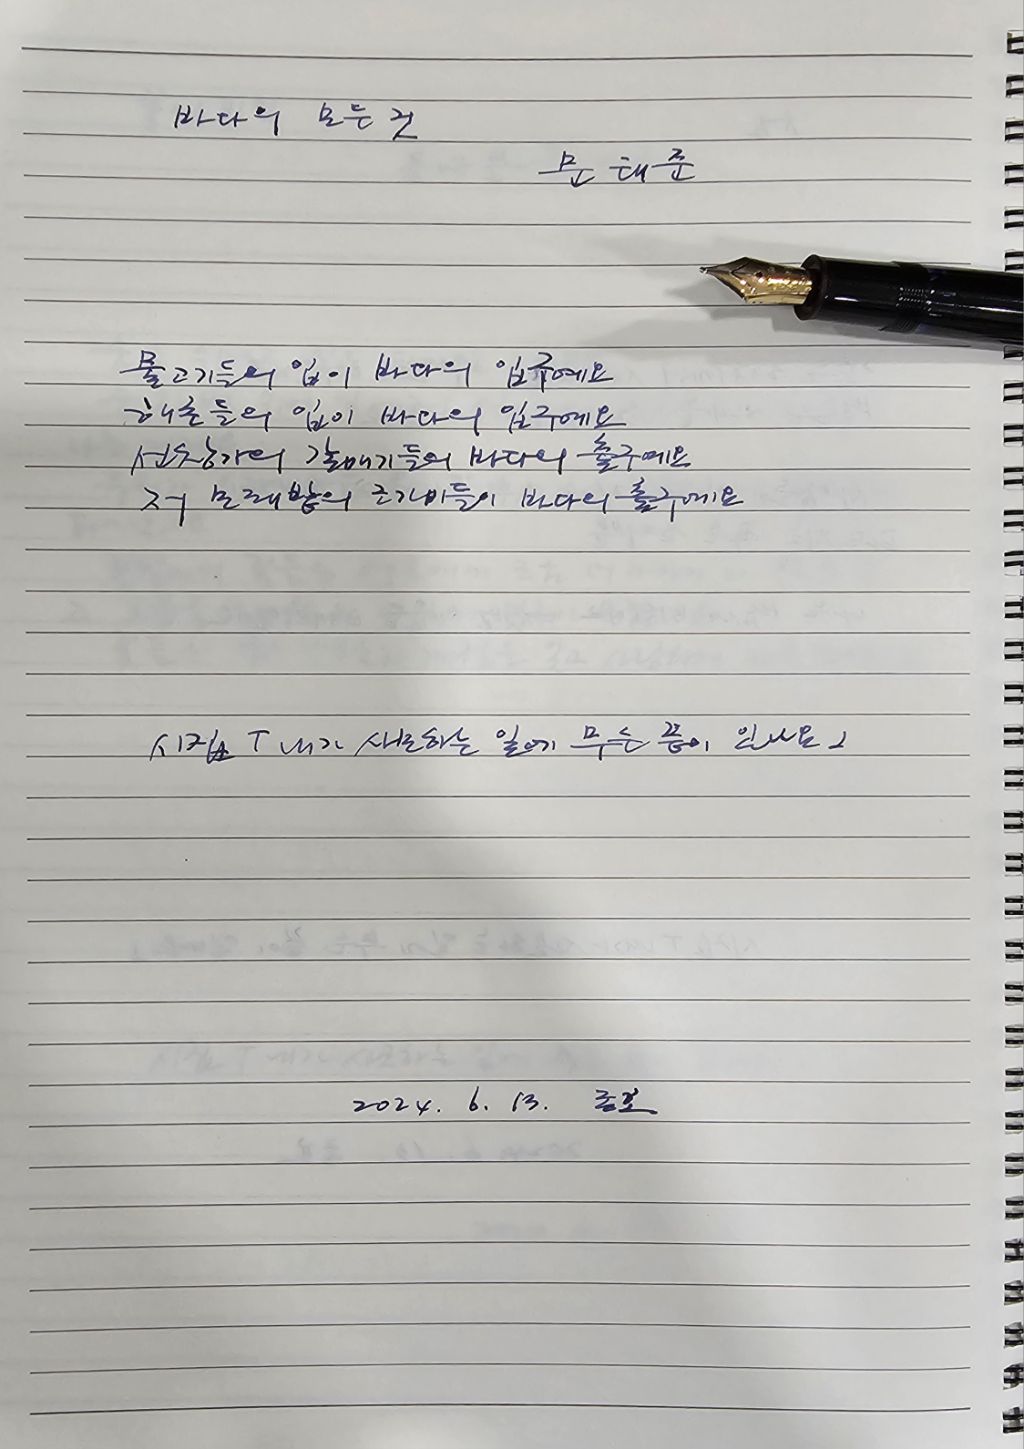 바다의 모든 것
문태준
물고기들의 입이 바다의 입구예요
해초들의 입이 바다의 입구예요
선창가의 갈매기들의 바다의 출구예요
저 모래밭의 조가비들이 바다의 출구예요
시집 「내가 사모하는 일에 무슨 끝이 있나요」
2024. 6. 13.